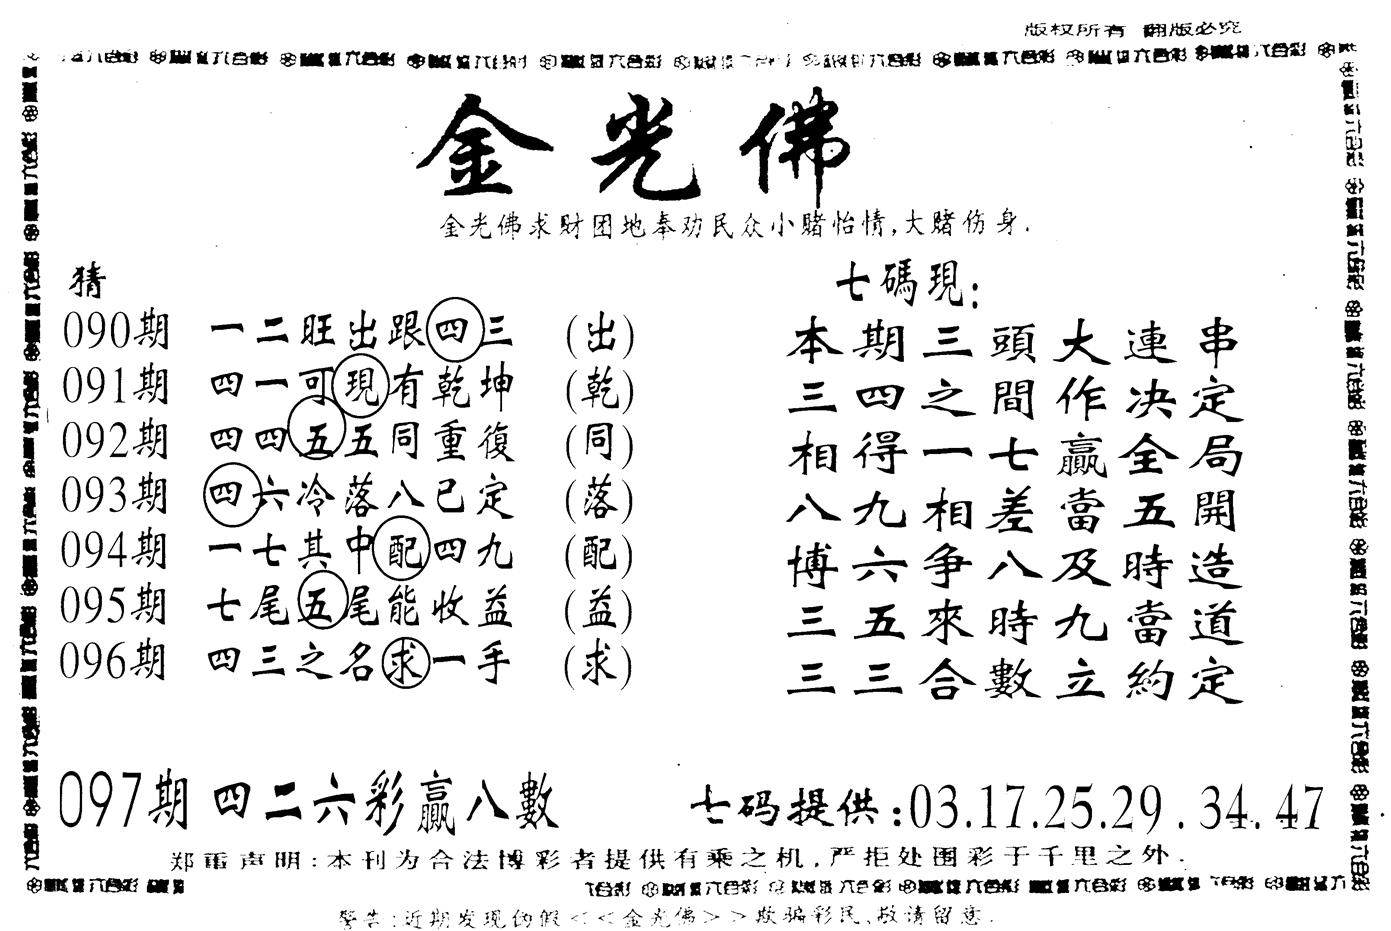 版权所有 翻版必究
金光佛
金光佛求财团地奉劝民众小赌怡情,大赌伤身.
猜
090期 一二旺出跟四三 (出)
091期 四一可現有乾坤 (乾)
092期 四四五五同重復 (同)
093期 四六冷落八已定 (落)
094期 一七其中配四九 (配)
095期 七尾五尾能收益 (益)
096期 四三之名求一手 (求)
七碼現:
本期三頭大連串
三四之間作决定
相得一七贏全局
八九相差當五開
博六争八及時造
三五來時九當道
三三合數立約定
097期 四二六彩贏八數
七码提供:03.17.25.29.34.47
郑重声明:本刊为合法博彩者提供有乘之机,严拒处围彩于千里之外.
警告:近期发现伪假<<金光佛>>欺骗彩民、敬请留意.